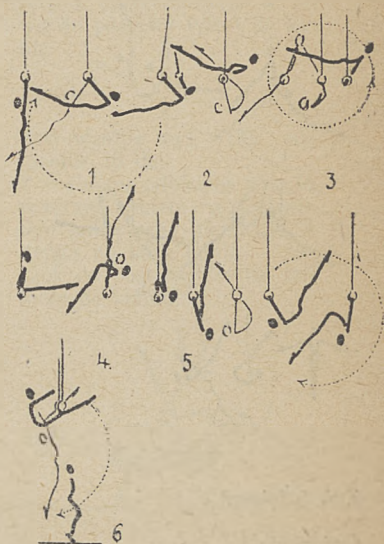 1 2 3
4. 5
6